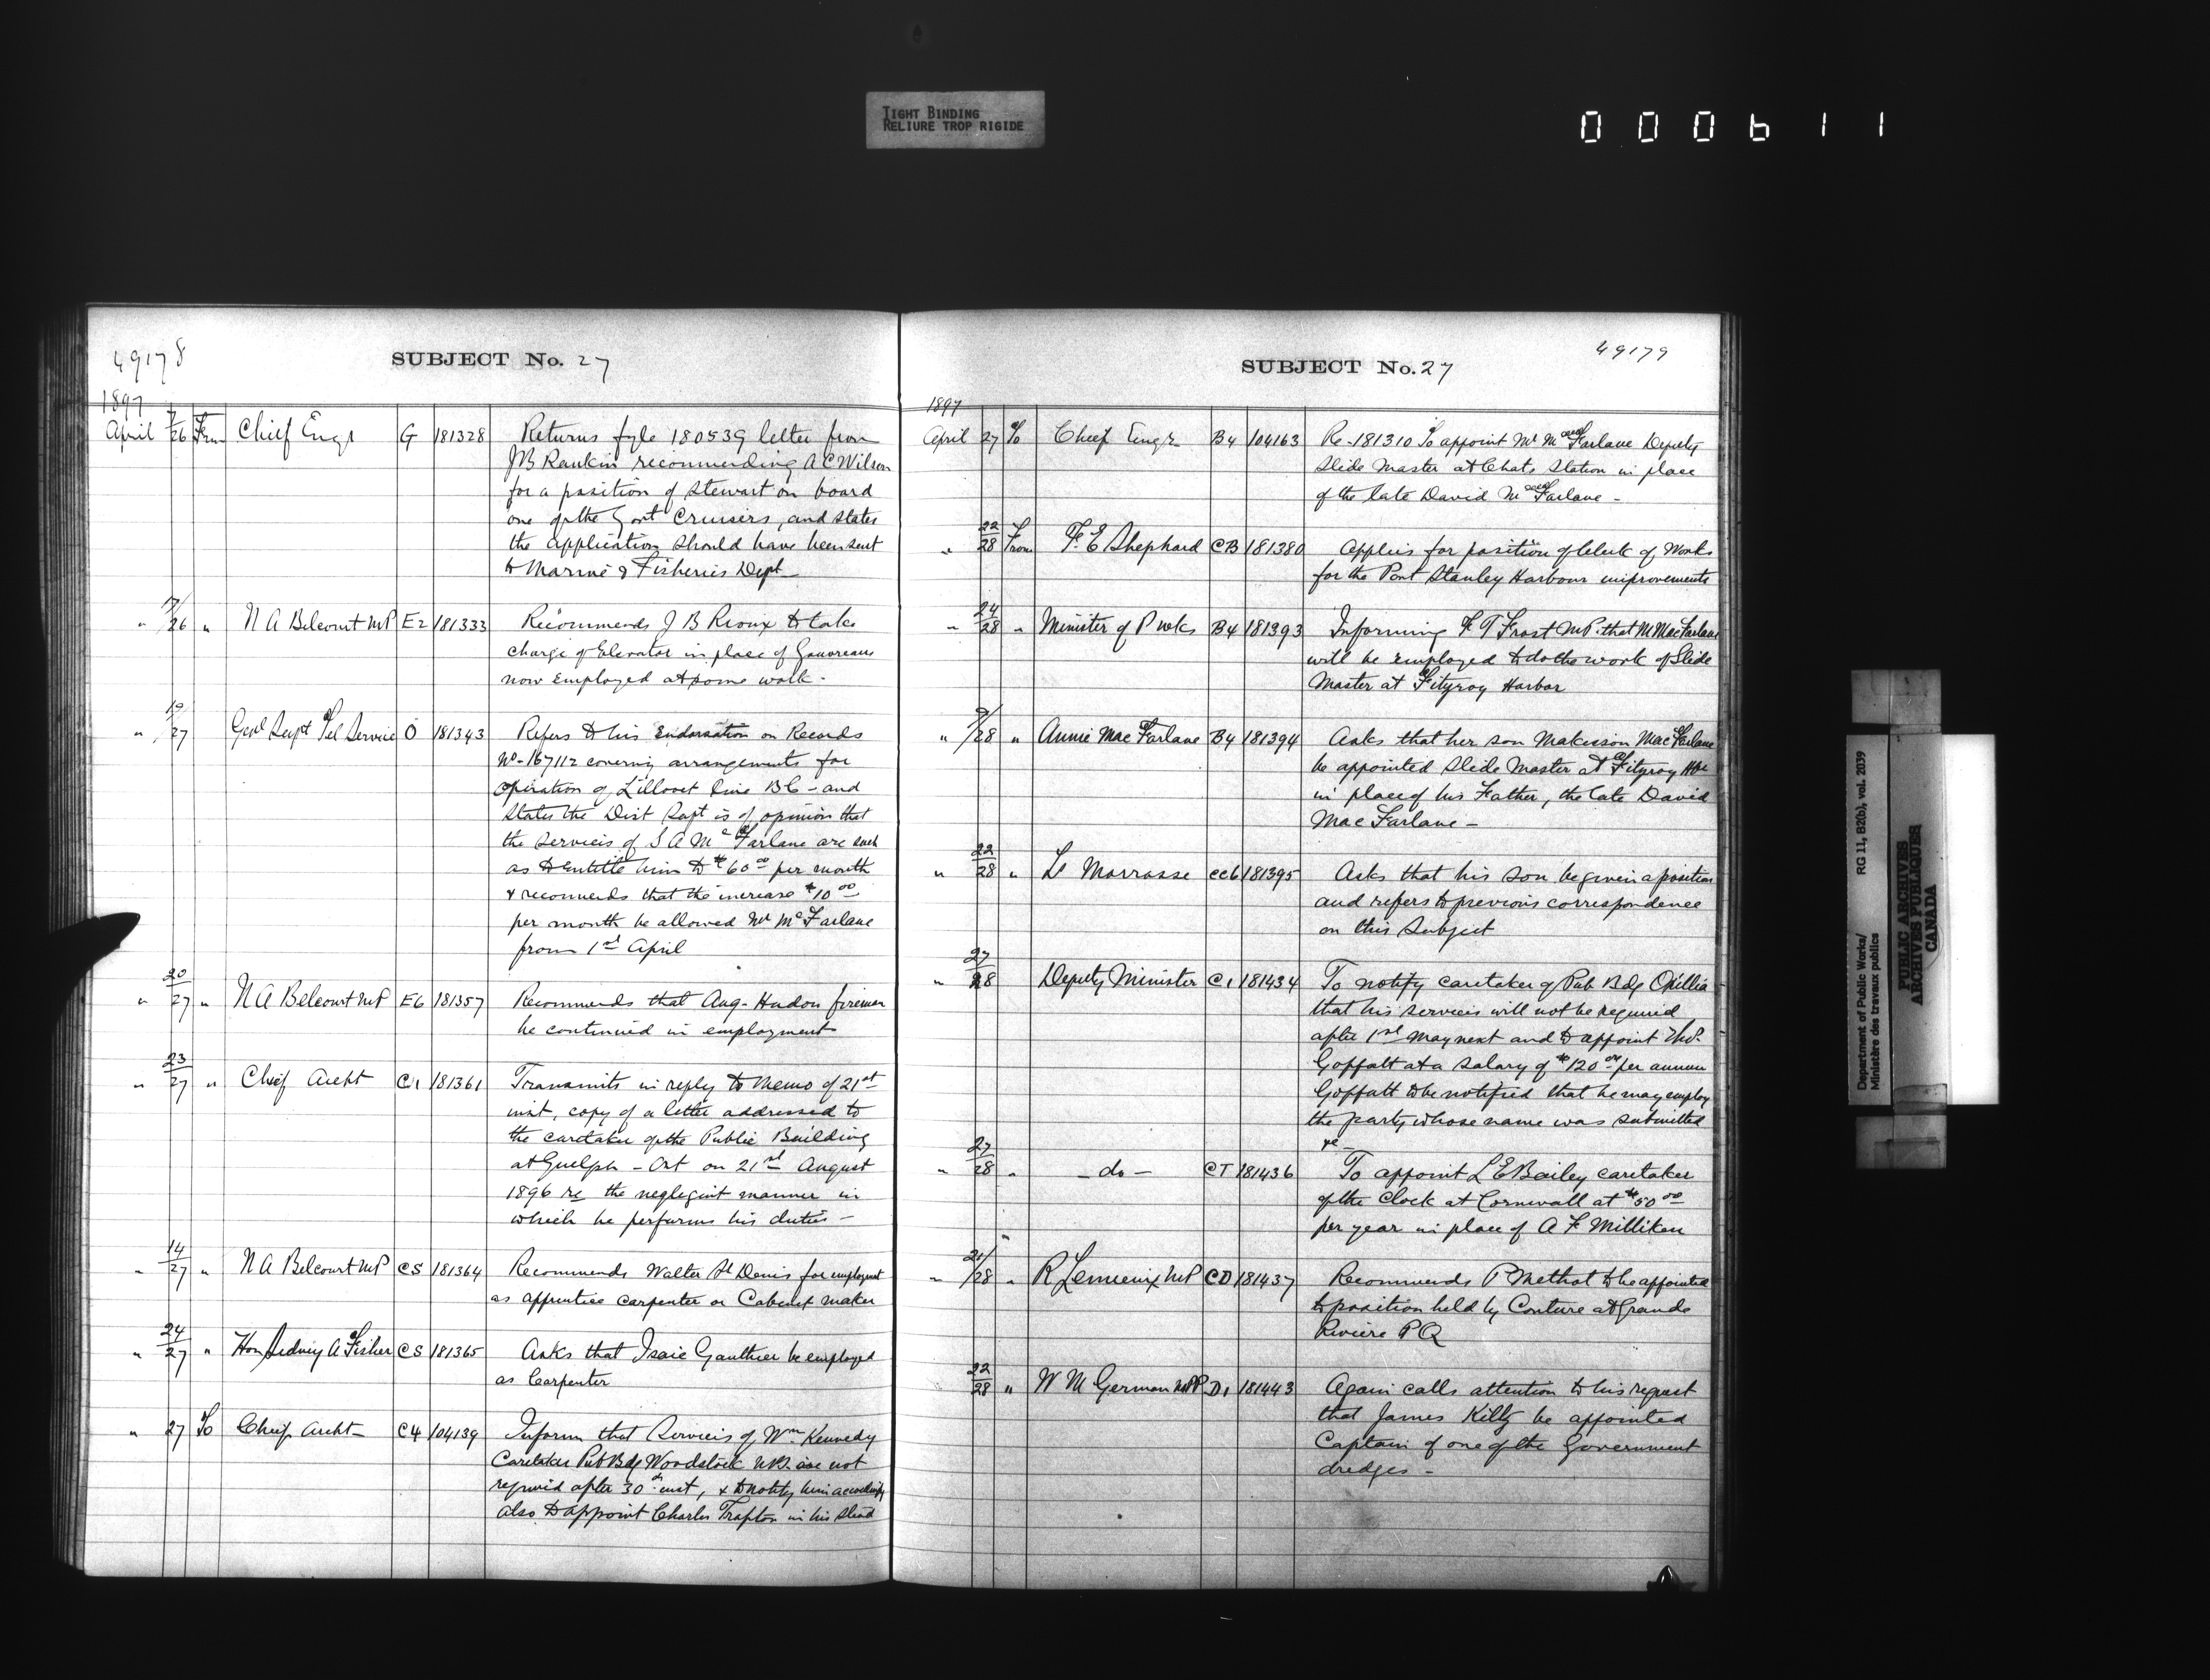 TIGHT BINDING
RELIURE TROP RIGIDE
000611
49178
SUBJECT No. 27
1897
April 7/26 From Chief Engr G 181328 Returns fyle 180539 letter from
JB Rankin recommending A C Wilson
for a position of Stewart on board
one of the Govt Cruisers, and states
the application should have been sent
to Marine & Fisheries Dept
" 17/26 " N A Belcourt MP E2 181333 Recommends J B Rioux to take
charge of Elevator in place of Gouvreau
now employed at some work.
" 10/27 Genl Supt Tel Service O 181343 Refers to his Endorsation on Records
No-167112 covering arrangements for
operation of Lillooet line BC - and
States the Dist Supt is of opinion that
the services of S A McFarlane are such
as to entitle him to $60.00 per month
& recomends that the increase $10.00
per month be allowed Mr McFarlane
from 1st April
" 20/27 " N A Belcourt MP E6 181357 Recommends that Aug. Hudon fireman
be continued in employment
" 23/27 " Chief Archt C1 181361 Transmits in reply to Memo of 21st
inst, copy of a letter addressed to
the caretaker of the Public Building
at Guelph - Ont on 21st August
1896 re the negligent manner in
which he performs his duties -
" 14/27 " N A Belcourt MP CS 181364 Recommends Walter St Denis for employment
as apprentice carpenter or Cabinet maker
" 24/27 " Hon Sidney A Fisher CS 181365 Asks that Isaie Gauthier be employed
as Carpenter
" 27 To Chief Archt - C4 104139 Inform that Services of Wm Kennedy
Caretaker Pub Bdg Woodstock NB. are not
required after 30th inst, & to notify him accordingly
also to appoint Charles Trafton in his stead
49179
SUBJECT No. 27
1897
April 27 To Chief Engr B4 104163 Re-181310 To appoint Mr MacFarlane Deputy
Slide Master at Chats Station in place
of the late David MacFarlane -
" 22/28 From F. E Shephard CB 181380 Applies for position of Clerk of Works
for the Port Stanley Harbour improvements
" 24/28 " Minister of P Wks B4 181393 Informing F T Frost MP. that M MacFarlane
will be employed to do the work of Slide
Master at Fitzroy Harbor
" 9/28 " Annie MacFarlane B4 181394 Asks that her son Makisson MacFarlane
be appointed Slide Master at Fitzroy Hbr
in place of his Father, the late David
MacFarlane -
" 22/28 " Ls Morrasse CC6 181395 Asks that his son be given a position
and refers to previous correspondence
on this Subject
" 27/28 Deputy Minister C1 181434 To notify caretaker of Pub Bdg Orillia
that his services will not be required
after 1st May next and to appoint Thos.
Goffatt at a salary of $120.00 per annum
Goffatt to be notified that he may employ
the party whose name was submitted
re -
" 27/28 " - do - CT 181436 To appoint L E Bailey caretaker
of the Clock at Cornwall at $50.00
per year in place of A F Milliken
" 21/28 " R Lemieux MP CD 181437 Recommends P Methot to be appointed
to position held by Couture at Grande
Riviere P Q
22/28 " W M German MPP D1 181443 Again calls attention to his request
that James Kilty be appointed
Captain of one of the Government
dredges -
Department of Public Works/ RG 11, B2(b), vol. 2039
Ministère des travaux publics
PUBLIC ARCHIVES
ARCHIVES PUBLIQUES
CANADA